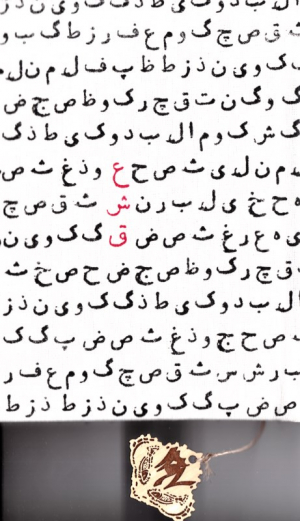 ث ق ص چ گ و م ع ف ر ز ط گ ب و
ک و ی ن ذ ز ط ظ پ ف ل م ن ل م
گ و گ ن ت ق چ ر ک و ظ ص ج ض
گ ش ک و م ا ل ب د و ک ی ط ذ گ
م ن ل ی ث ص ح ع و ذ غ ث ص
ه ح خ ی ل ب ر ن ش ث ق ص چ
ی ه ع ر غ ث ص ض ق گ ک و ی ن
ق چ ر ک و ظ ص ج ض ح ص خ ث
ل ب د و ک ی ط ذ گ ک و ی ن ذ ز
ص ح ج و ذ غ ث ص ض پ گ ک
ب ر ش س ث ق ص چ گ و م ع ف ر
ص ض پ گ ک و ی ن ذ ز ط ذ ز ط